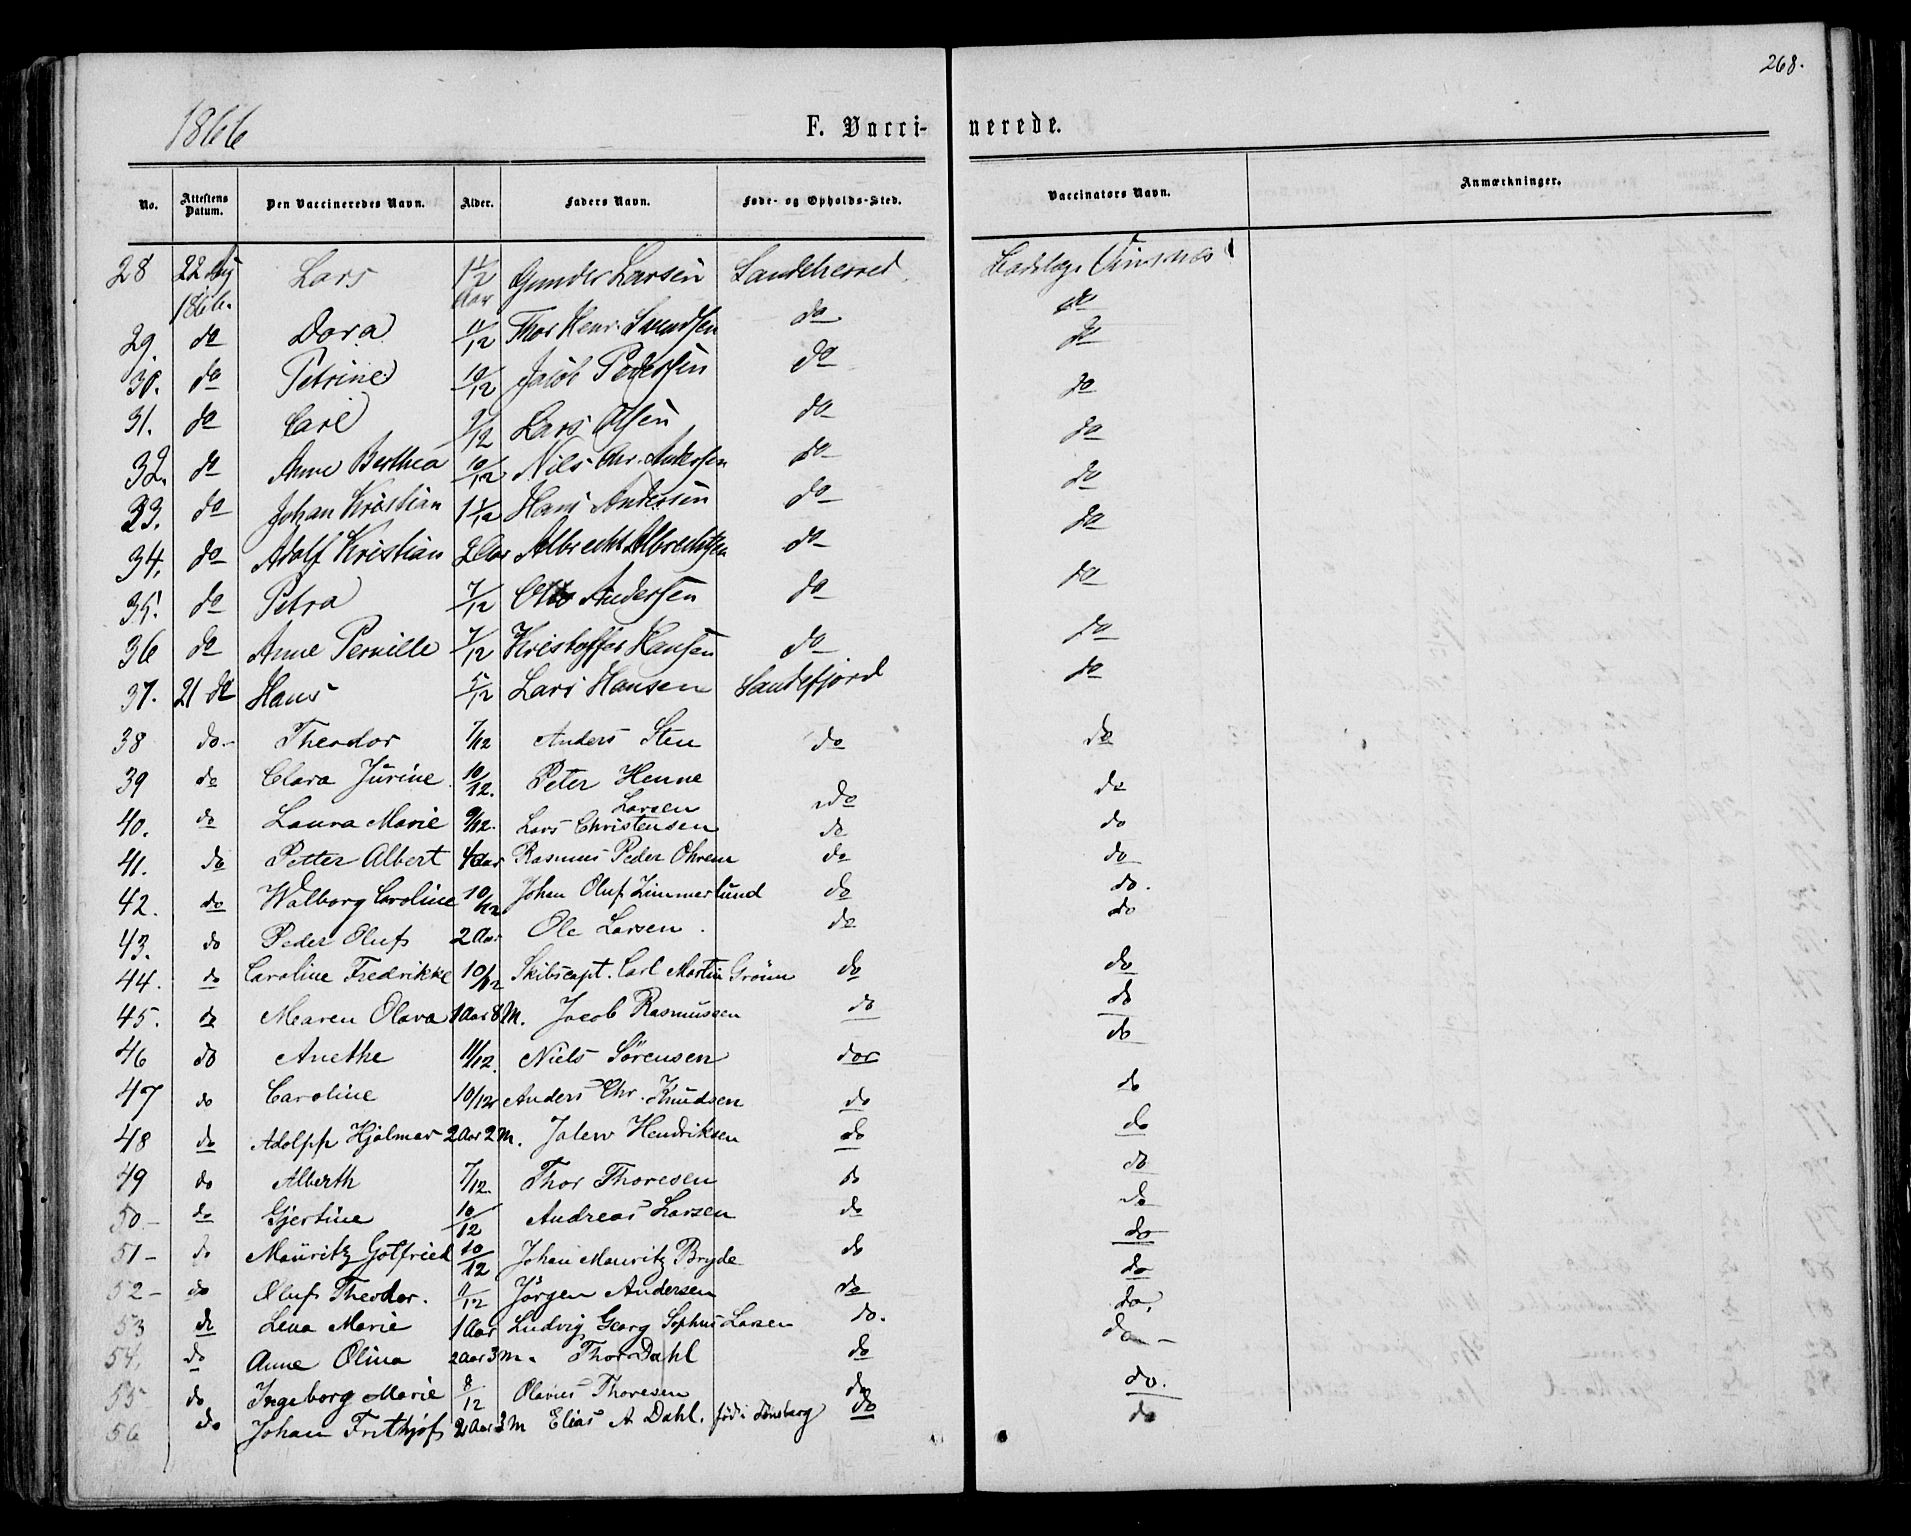 268.
1866
F. Vacci- nerede.
No. Attestens Datum. Den Vaccineredes Navn. Alder. Faders Navn. Føde- og Opholds-Sted. Vaccinators Navn. Anmærkninger.
28 22 Aug 1866. Lars 1 1/2 Aar Gunder Larsen Sandeherred
29. do Dora 11/12 Thor Henr. Svendsen do do
30. do Petrine 10/12 Jacob Pedersen do do
31. do Carl 9/12 Lars Olsen do do
32. do Anne Berthea 10/12 Nils Chr. Andersen do do
33. do Johan Kristian 1 1/12 Hans Andersen do do
34. do Adolf Kristian 2 Aar Albrecht Albrechtsen do do
35. do Petra 7/12 Otto Andersen do do
36 do Anne Pernille 7/12 Kristoffer Hansen do do
37. 21 do Hans 5/12 Lars Hansen Sandefjord do
38 do- Theodor 7/12 Anders Sten do do
39 do Clara Jurine 10/12. Peter Henne Larsen do do
40. do Laura Marie 9/12. Lars Christensen do do
41. do Petter Albert 4 Aar Rasmus Peder Ohren do do
42. do Walborg Caroline 10/12 Johan Oluf Zimmerlund do do.
43. do Peder Oluf 2 Aar Ole Larsen. do do
44. do Caroline Fredrikke 10/12 Skibscapt. Carl Martin Grønn do do
45. do Maren Olava 1 Aar 8 M. Jacob Rasmussen do do
46 do Anethe 11/12. Niels Sørensen do do
47 do Caroline 10/12 Anders Chr. Knudsen do do
48 do Adolph Hjalmar 2 Aar 2 M. Hendriksen do do
49 do Alberth 7/12. Thor Thoresen do do
50- do Gjertine 10/12 Andreas Larsen do do
51- do Mauritz Gotfried 10/12 Johan Mauritz Bryde do do
52- do Oluf Theodor. 11/12 Jörgen Andersen do do
53 do Lena Marie 1 Aar Ludvig Georg Sophus Larsen do. do,
54. do Anne Olina 2 Aar 3 M. Thor Dahl do do-
55 do Ingeborg Marie 8/12 Olavus Thoresen do do.
56 do Johan Frithjof 2 Aar 3 M Elias A Dahl. født i Tønsberg do do